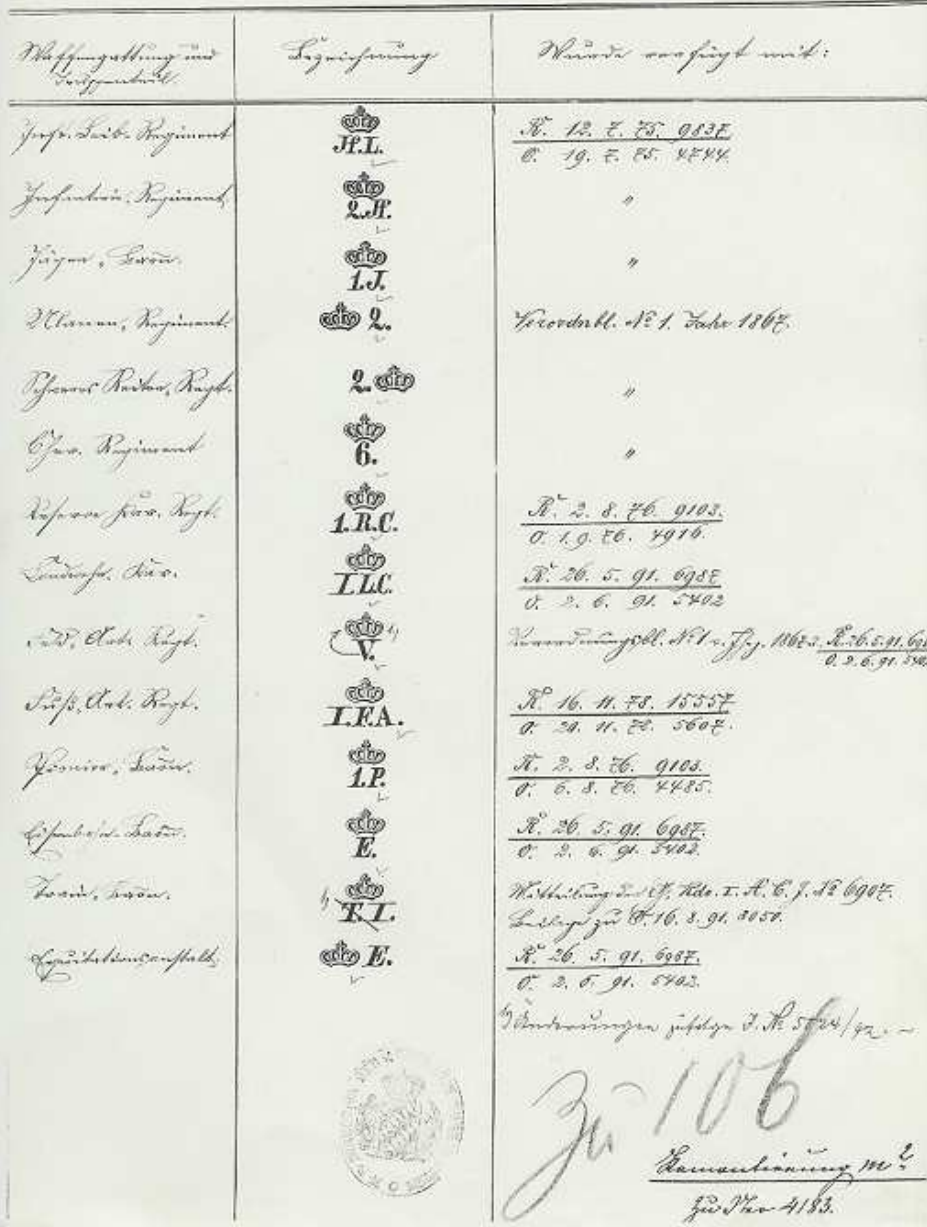 Waffengattung und Bezeichnung Wurde verfügt mit:
Truppenteil.
Inftr. Leib-Regiment H.L. K. 12. 7. 75. 9837.
O. 19. 7. 75. 4744.
Infanterie, Regiment, 2.H. "
Jäger, Baon. 1.J. "
Ulanen, Regiment. 2. Verordnbl. № 1. Jahr 1867.
Schweres Reiter, Regt. 2. "
Chev. Regiment 6. "
Reserve Kav. Regt. 1.R.C. K. 2. 8. 76. 9103.
O. 1. 9. 76. 4916.
Landwehr. Kav. I.L.C. K. 26. 5. 91. 6987
O. 2. 6. 91. 5402
Feld, Art. Regt. V. Verordnungsbl. № 1 1867 K. 26.5.91. 698
O. 2. 6. 91. 540
Fuß, Art. Regt. I.F.A. K. 16. 11. 78. 15557
O. 20. 11. 78. 5607.
Pionier, Baon. 1.P. K. 2. 8. 76. 9103.
O. 6. 8. 76. 4485.
Eisenbahn-Baon. E. K. 26. 5. 91. 6987.
O. 2. 6. 91. 5402.
Train, Baon. T.I. Mitteilung des G. Kdo. I. A. C. J. № 6907.
Beilage zu O. 16. 8. 91. 8050.
Equitationsanstalt. E. K. 26. 5. 91. 6987.
O. 2. 6. 91. 5402.
Änderungen zufolge J. №
Zu 106
Remontierung m 2
Zu Nro 4183.